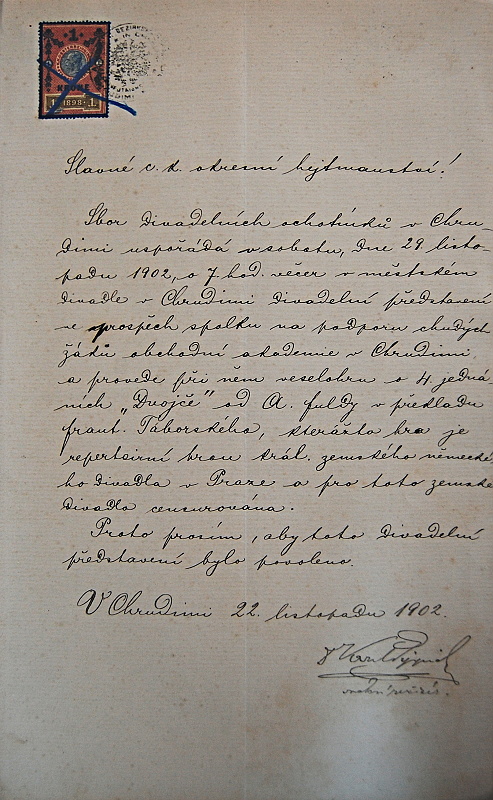 1
KRONE
1 1898 1
Slavné c. k. okresní hejtmanství!
Sbor divadelních ochotníků v Chru-
dimi uspořádá v sobotu, dne 29. listo-
padu 1902, o 7. hod. večer v městském
divadle v Chrudimi divadelní představení
ve prospěch spolku na podporu chudých
žáků obchodní akademie v Chrudimi,
a provede při něm veselohru o 4 jedná-
ních „Dvojče" od A. Fuldy v překladu
Frant. Táborského, kterážto hra je
repertoirní hrou král. zemského německé-
ho divadla v Praze a pro toto zemské
divadlo censurována.
Proto prosím, aby toto divadelní
představení bylo povoleno.
V Chrudimi 22. listopadu 1902.
Dr Karel